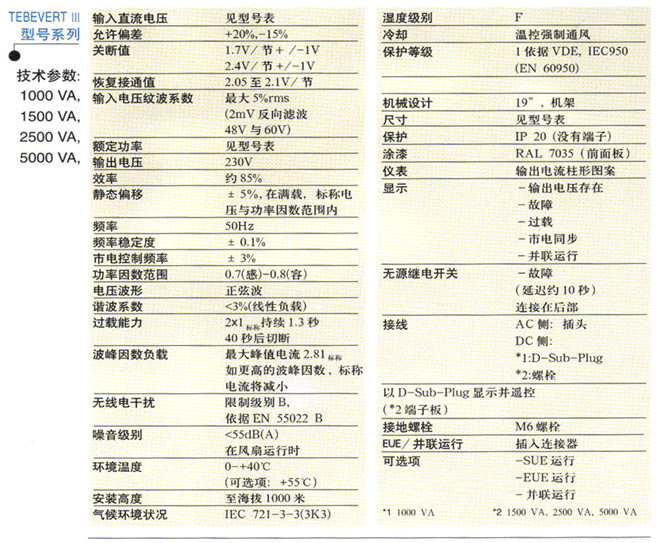 TEBEVERT III
型号系列
技术参数:
1000 VA,
1500 VA,
2500 VA,
5000 VA,
输入直流电压 见型号表
允许偏差 +20%,-15%
关断值 1.7V/ 节+ /-1V
2.4V/ 节+/-1V
恢复接通值 2.05 至 2.1V/ 节
输入电压纹波系数 最大 5%rms
(2mV 反向滤波
48V 与 60V)
额定功率 见型号表
输出电压 230V
效率 约 85%
静态偏移 ± 5%,在满载, 标称电
压与功率因数范围内
频率 50Hz
频率稳定度 ± 0.1%
市电控制频率 ± 3%
功率因数范围 0.7(感)-0.8(容)
电压波形 正弦波
谐波系数 <3%(线性负载)
过载能力 2x1标称持续 1.3 秒
40 秒后切断
波峰因数负载 最大峰值电流 2.81标称
如更高的波峰因数, 标称
电流将减小
无线电干扰 限制级别 B,
依据 EN 55022 B
噪音级别 <55dB(A)
在风扇运行时
环境温度 0-+40℃
(可选项: +55℃)
安装高度 至海拔 1000 米
气候环境状况 IEC 721-3-3(3K3)
湿度级别 F
冷却 温控强制通风
保护等级 1 依据 VDE, IEC950
(EN 60950)
机械设计 19", 机架
尺寸 见型号表
保护 IP 20 (没有端子)
涂漆 RAL 7035 (前面板)
仪表 输出电流柱形图案
显示 -输出电压存在
-故障
-过载
-市电同步
-并联运行
无源继电开关 -故障
(延迟约 10 秒)
连接在后部
接线 AC 侧: 插头
DC 侧:
*1:D-Sub-Plug
*2:螺栓
以 D-Sub-Plug 显示并遥控
(*2 端子板)
接地螺栓 M6 螺栓
EUE/ 并联运行 插入连接器
可选项 -SUE 运行
-EUE 运行
- 并联运行
*1 1000 VA *2 1500 VA, 2500 VA, 5000 VA